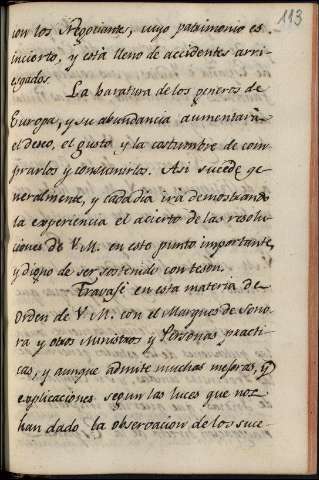 113
con los Negociantes, cuyo patrimonio es
incierto, y está lleno de accidentes arri-
esgados.
La baratura de los generos de
Europa, y su abundancia aumentará
el deseo, el gusto y la costumbre de com-
prarlos y consumirlos. Asi sucede ge-
neralmente, y cada dia irá demostrando
la experiencia el acierto de las resolu-
ciones de V. M. en este punto importante,
y digno de ser sostenido con teson.
Travajé en esta materia de
Orden de V. M. con el Marques de Sono-
ra y otros Ministros y Personas practi-
cas, y aunque admite muchas mejoras, y
explicaciones segun las luces que nos
han dado la observacion de los suce-